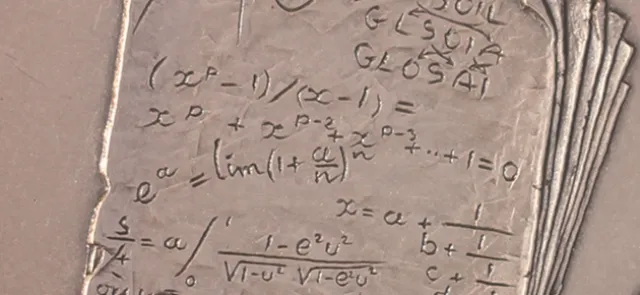 SOIL
GLSOIA
GLOSAI
(x^p - 1)/(x - 1) =
x^p + x^{p-2} + x^{p-3} + ... + 1 = 0
e^a = lim(1 + a/n)^n
x = a + 1
S/4 = a ∫_0^1 (1 - e²v²)/(√1-v² √1-e²v²)
b + 1
c + 1